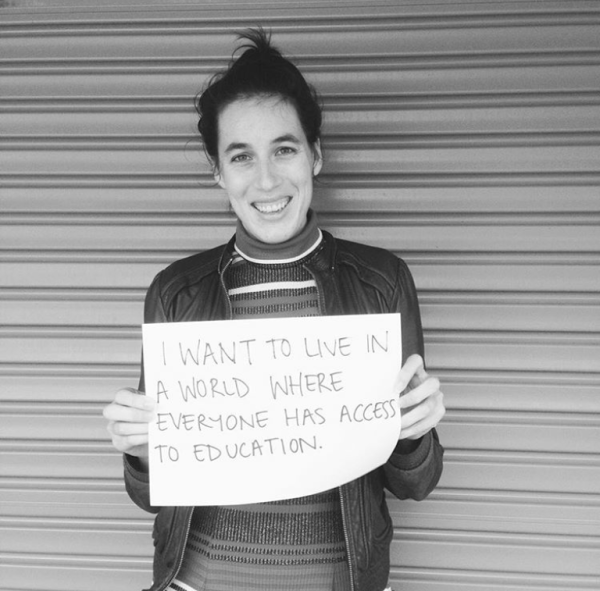 I WANT TO LIVE IN
A WORLD WHERE
EVERYONE HAS ACCESS
TO EDUCATION.